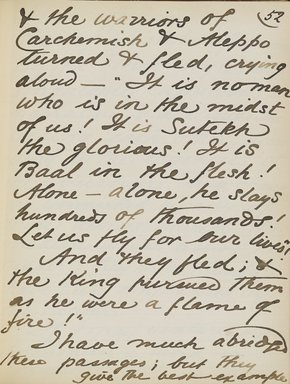 52
& the warriors of
Carchemish & Aleppo
turned & fled, crying
aloud — "It is no man
who is in the midst
of us! It is Sutekh
the glorious! It is
Baal in the flesh!
Alone — alone, he slays
hundreds of thousands!
Let us fly for our lives"!
And they fled; &
the King pursued them
as he were a flame of
fire!"
I have much abridged
these passages; but they
give the best example